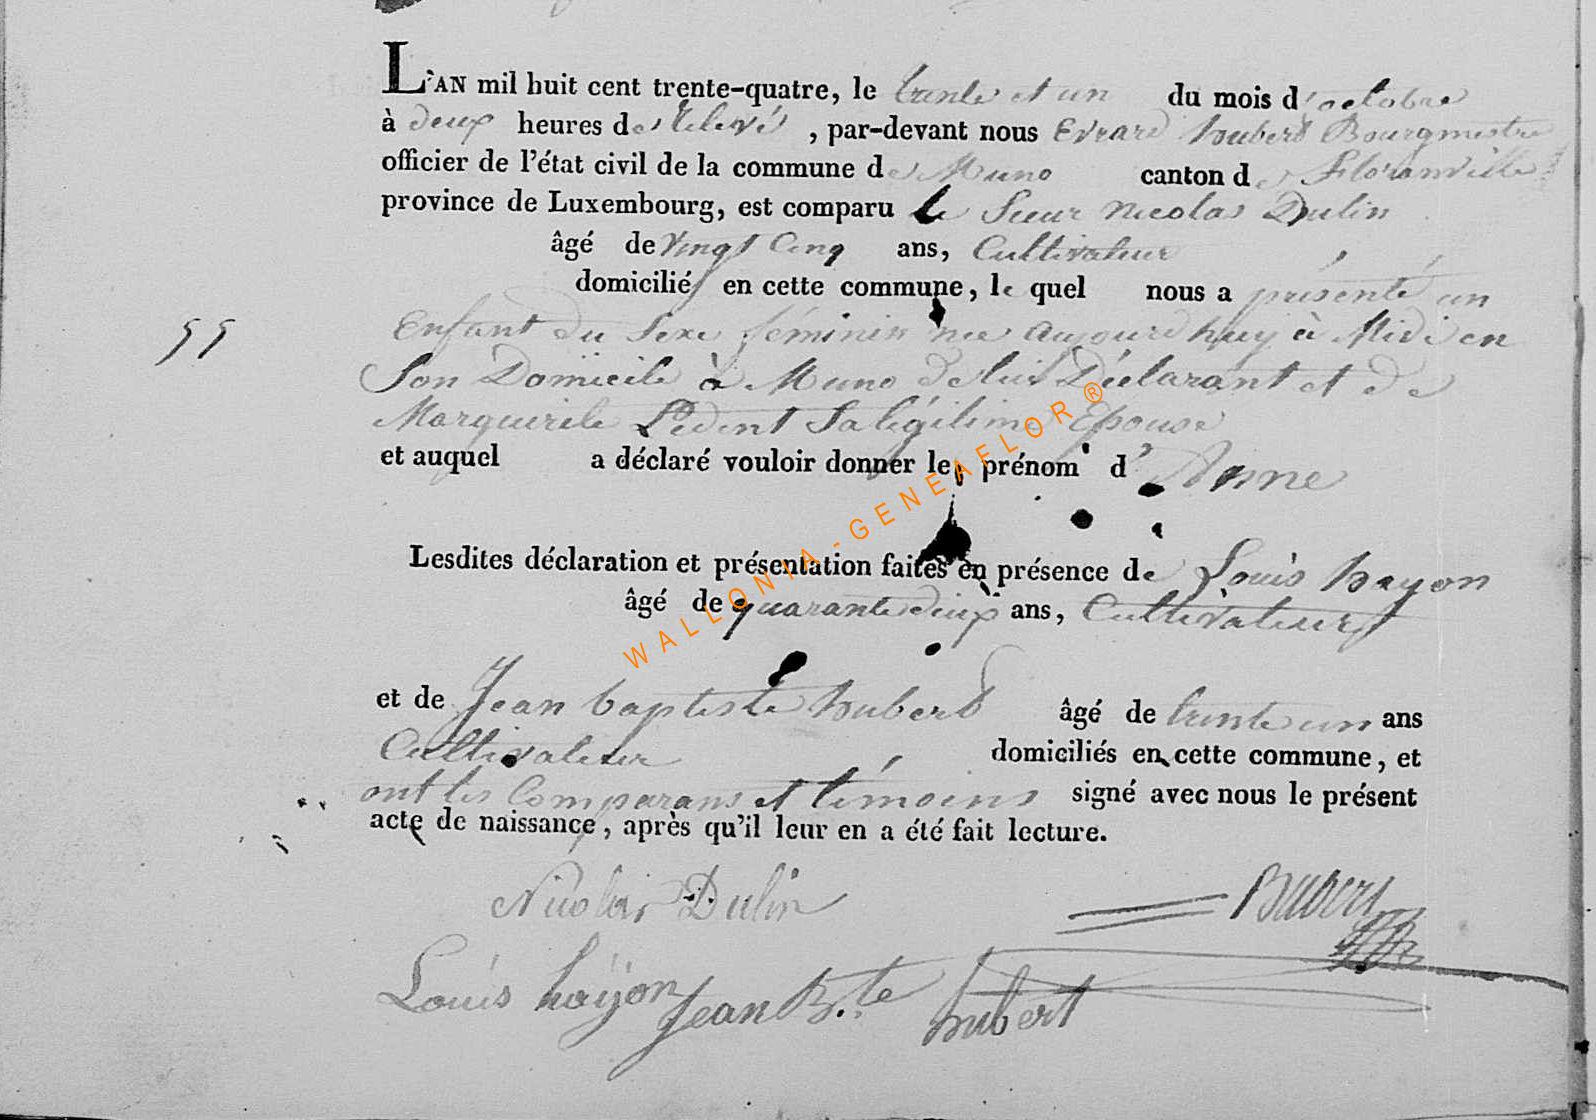 L'AN mil huit cent trente-quatre, le trente et un du mois d'octobre
à deux heures des relevés, par-devant nous Evrard hubert Bourgmestre
officier de l'état civil de la commune de Muno canton de Floranville
province de Luxembourg, est comparu le Sieur Nicolas Dulin
âgé de vingt Cinq ans, Cultivateur
domicilié en cette commune, le quel nous a présenté un
Enfant du Sexe féminin née aujourd'huy à Midi en
55
Son Domicile à Muno de lui Déclarant et de
Marguerite Pedent Sa légitime Epouse
et auquel a déclaré vouloir donner le prénom d'Anne
Lesdites déclaration et présentation faites en présence de Louis hayon
âgé de quarante deux ans, Cultivateur
et de Jean baptiste hubert âgé de trente un ans
Cultivateur domiciliés en cette commune, et
ont les Comparans et témoins signé avec nous le présent
acte de naissance, après qu'il leur en a été fait lecture.
Nicolas Dulin
Louis hayon Jean B.te hubert
WALLONIA-GENEAFLOR®